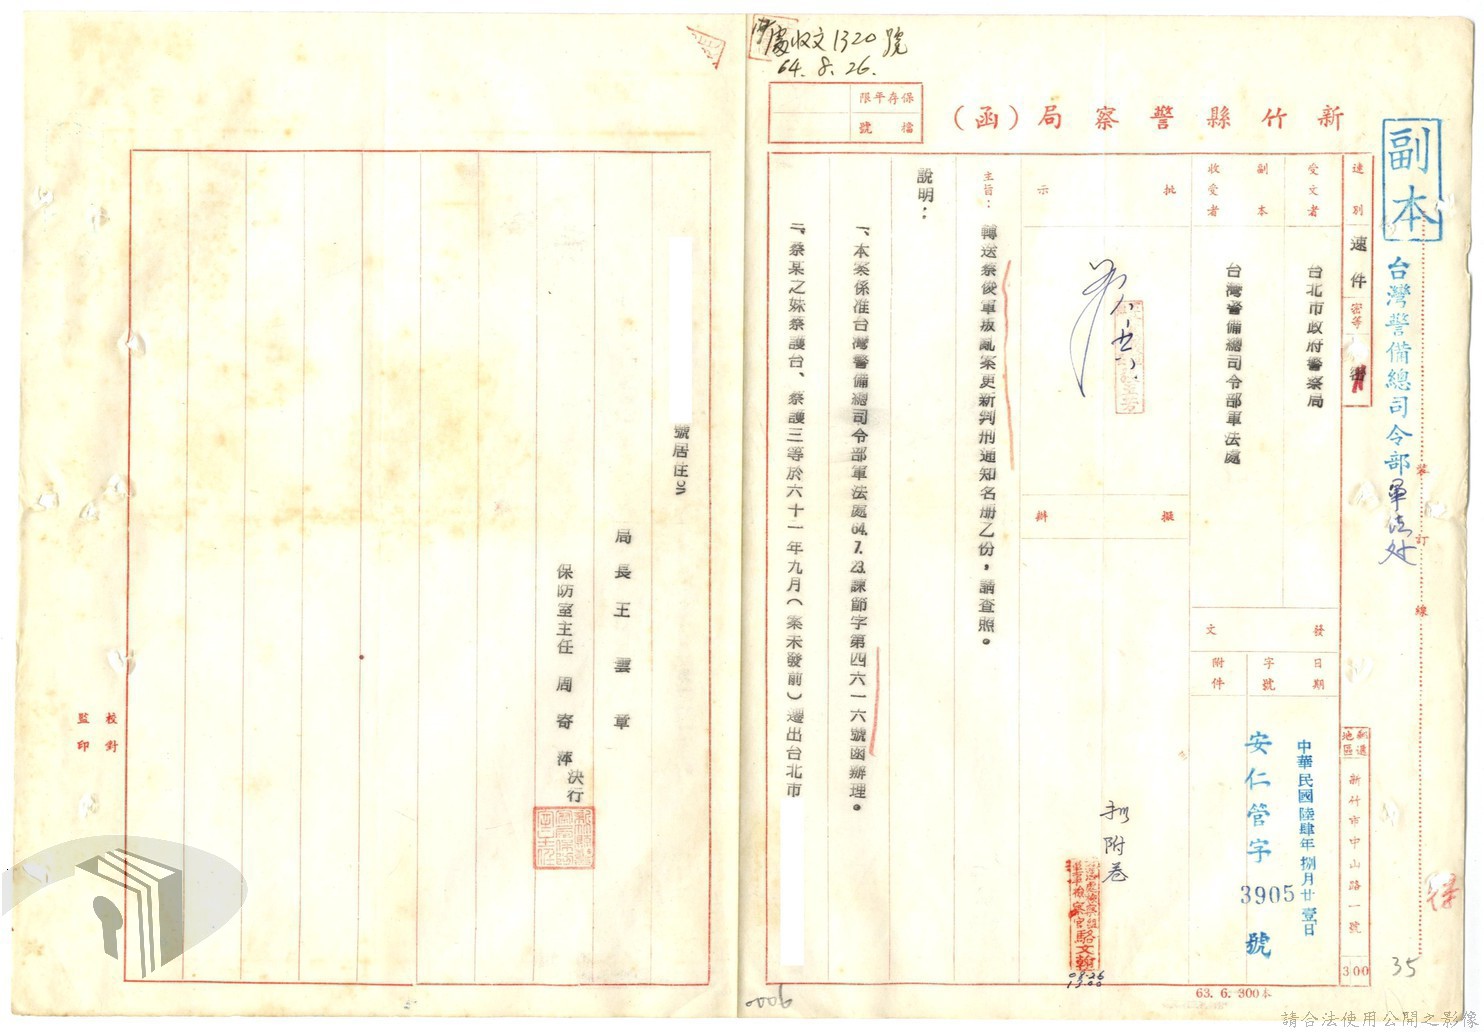 處收文1320號
64. 8. 26.
保存年限
檔號
新竹縣警察局（函）
副本
台灣警備總司令部軍法處
裝訂線
速別
速件
密等
密
郵遞地區
新竹市中山路一號
300
受文者
台北市政府警察局
副本收受者
台灣警備總司令部軍法處
發文
日期
中華民國陸肆年捌月廿壹日
字號
安仁管字3905號
附件
批示
擬辦
主旨：轉送蔡俊軍叛亂案更新判刑通知名册乙份，請查照。
說明：
一、本案係准台灣警備總司令部軍法處64.7.23.諫節字第四六一六號函辦理。
二、蔡某之妹蔡護台、蔡護三等於六十一年九月（案未發前）遷出台北市
號居住。
局長王雲章
保防室主任 周寄萍
決行
附卷
軍事檢察官駱文翰
08.26
1300
校對
監印
63. 6. 300本
35
0006
請合法使用公開之影像